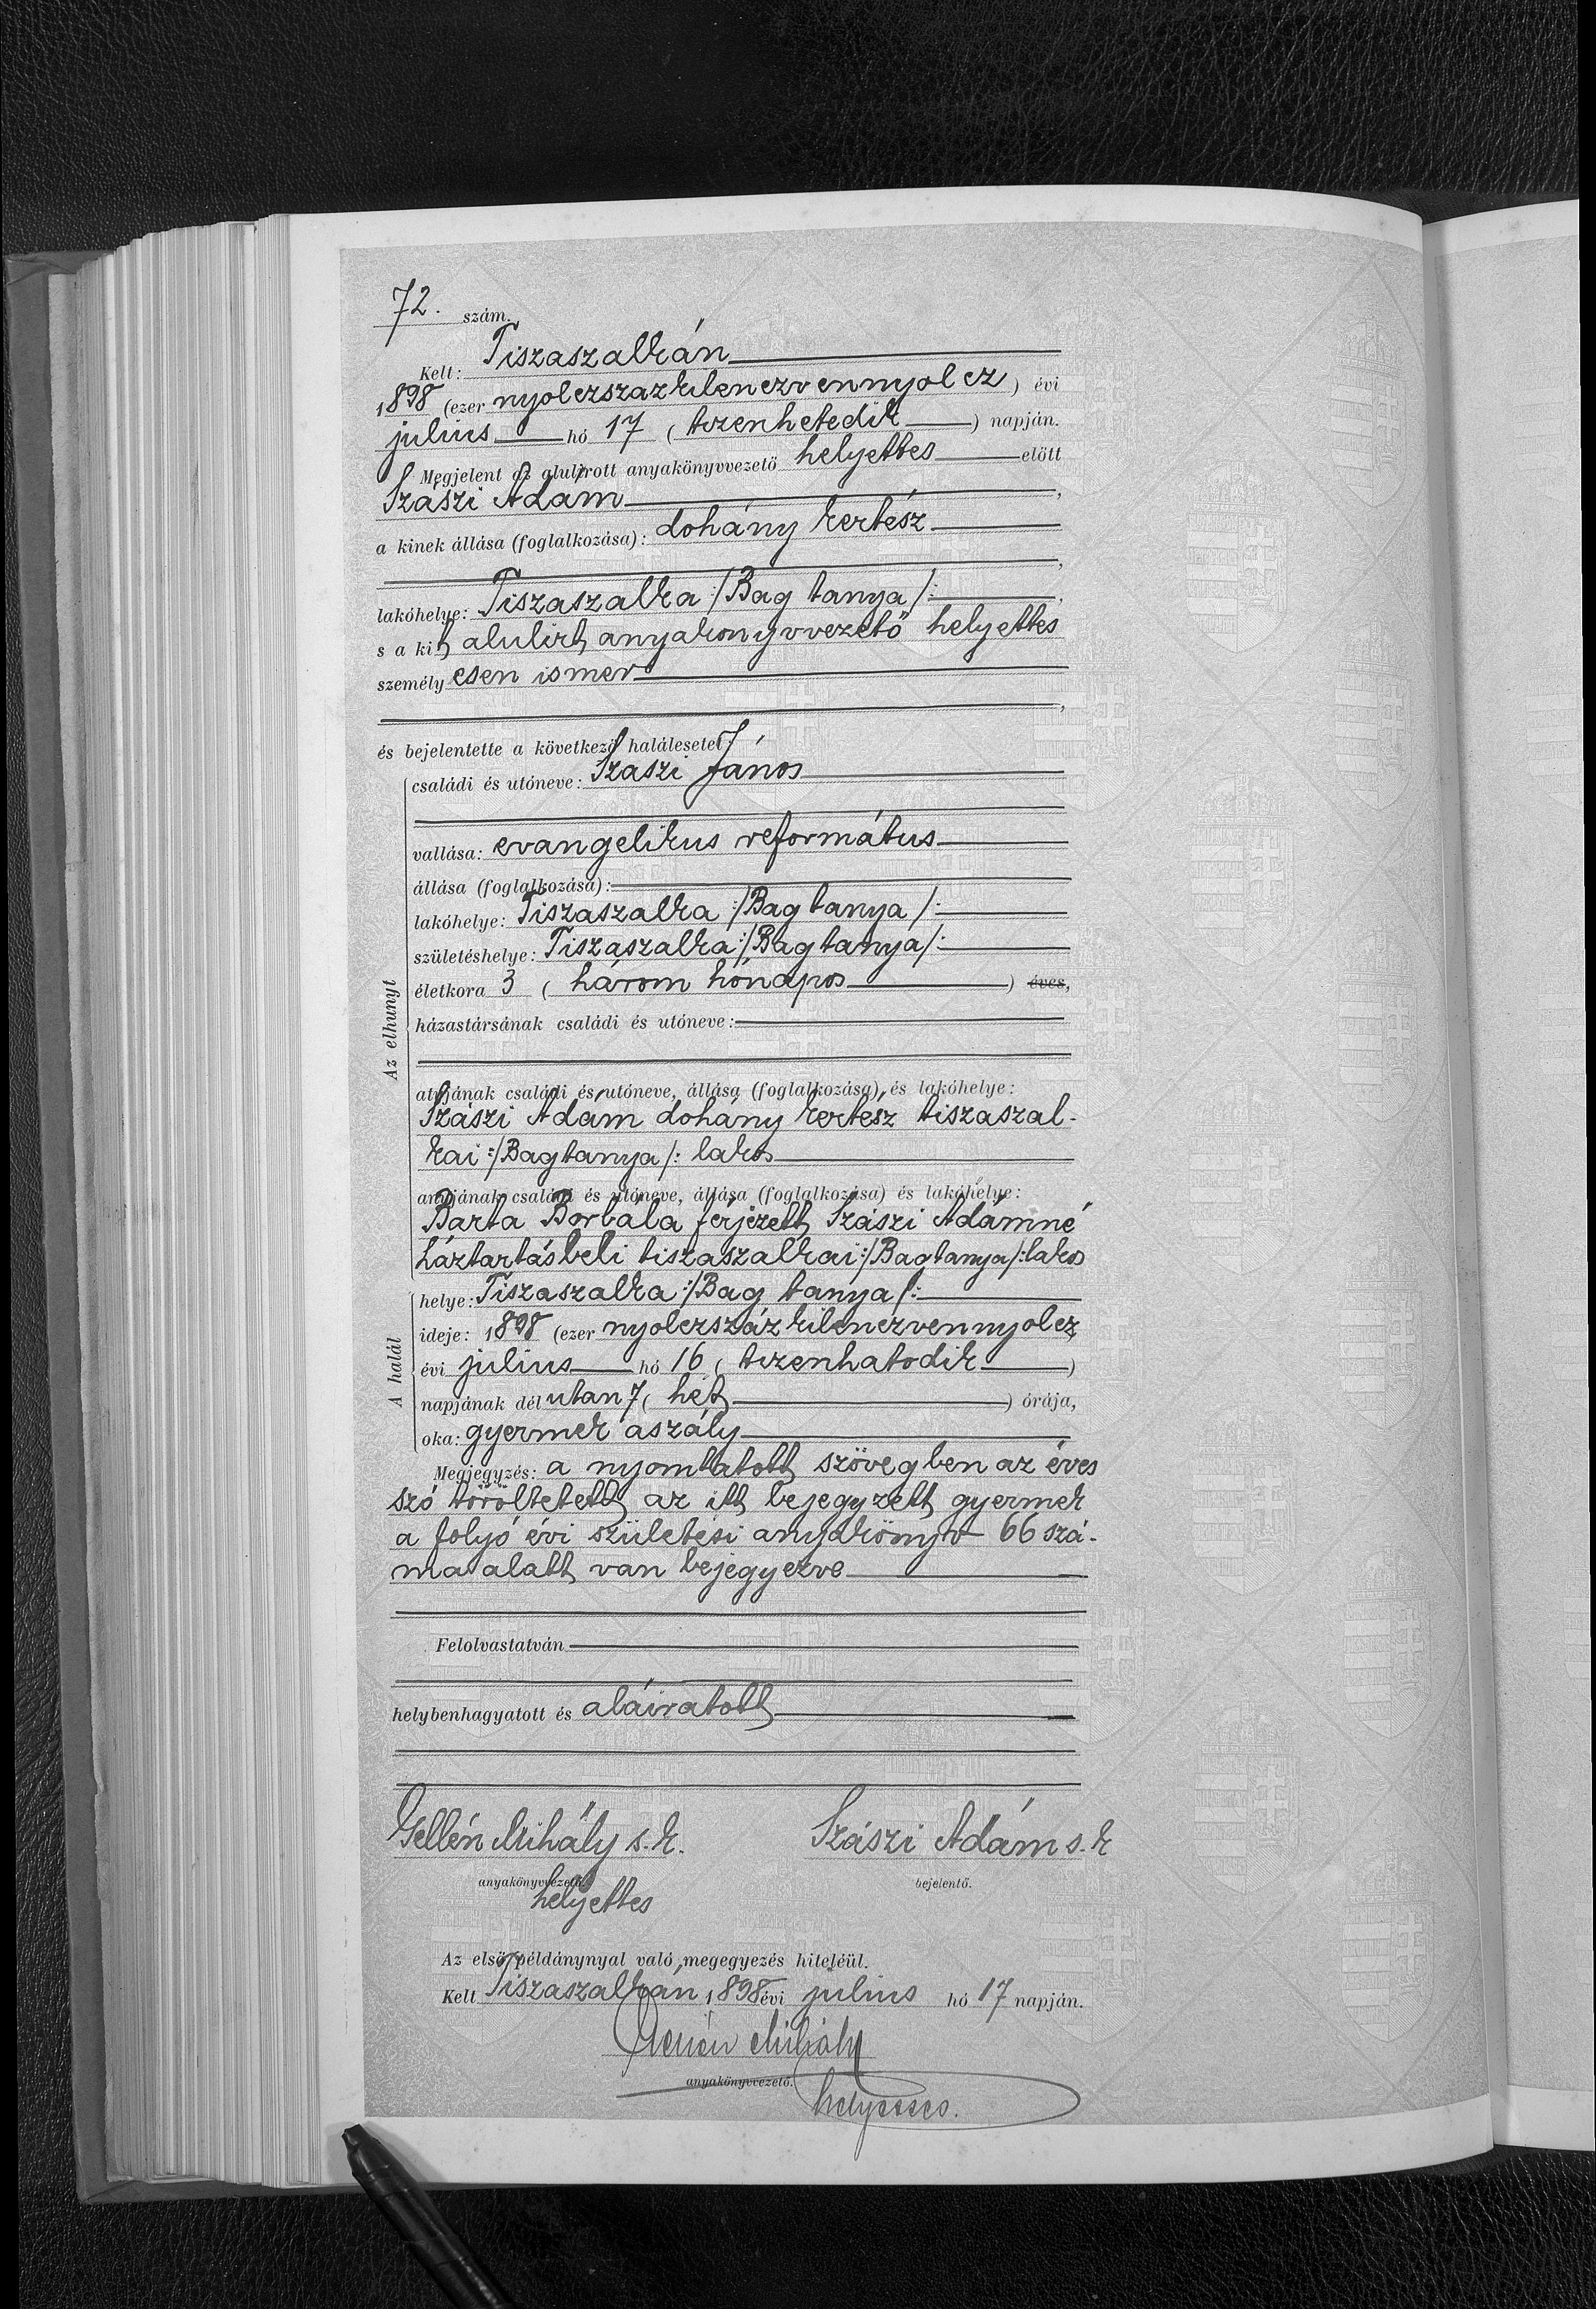 72. szám.
Kelt: Tiszaszalkán
1898 (ezer nyolczszázkilenczvennyolcz) évi
julius hó 17 (tizenhetedik) napján.
Megjelent az alulirott anyakönyvvezető helyettes előtt
Szászi Ádám,
a kinek állása (foglalkozása): dohány kertész
,
lakóhelye: Tiszaszalka :/Bag tanya/:,
s a kit alulirt anyakönyvvezető helyettes
személyesen ismer
,
és bejelentette a következő halálesetet:
Az elhunyt
családi és utóneve: Szászi János
vallása: evangelikus református
állása (foglalkozása):
lakóhelye: Tiszaszalka :/Bag tanya/:
születéshelye: Tiszaszalka :/Bag tanya/:
életkora 3 (három hónapos) éves,
házastársának családi és utóneve:
atyjának családi és utóneve, állása (foglalkozása) és lakóhelye:
Szászi Ádám dohány kertész tiszaszal-
kai :/Bagtanya/: lakos
anyjának családi és utóneve, állása (foglalkozása) és lakóhelye:
Barta Borbála férjezett Szászi Ádámné
háztartásbeli tiszaszalkai :/Bagtanya/: lakos
A halál
helye: Tiszaszalka :/Bag tanya/:
ideje: 1898 (ezer nyolczszáz kilenczvennyolcz
évi julius hó 16 (tizenhatodik)
napjának délutan 7 (hét) órája,
oka: gyermek aszály
Megjegyzés: a nyomtatott szövegben az éves
szó töröltetett az itt bejegyzett gyermek
a folyó évi születési anyakönyv 66 szá-
ma alatt van bejegyezve
Felolvastatván
helybenhagyatott és aláiratott
Gellén Mihály s.k. Szászi Ádám s.k
anyakönyvvezető. bejelentő.
helyettes
Az első példánynyal való megegyezés hiteléül.
Kelt Tiszaszalkán, 1898 évi julius hó 17 napján.
Gellén Mihály
anyakönyvvezető.
helyettes.